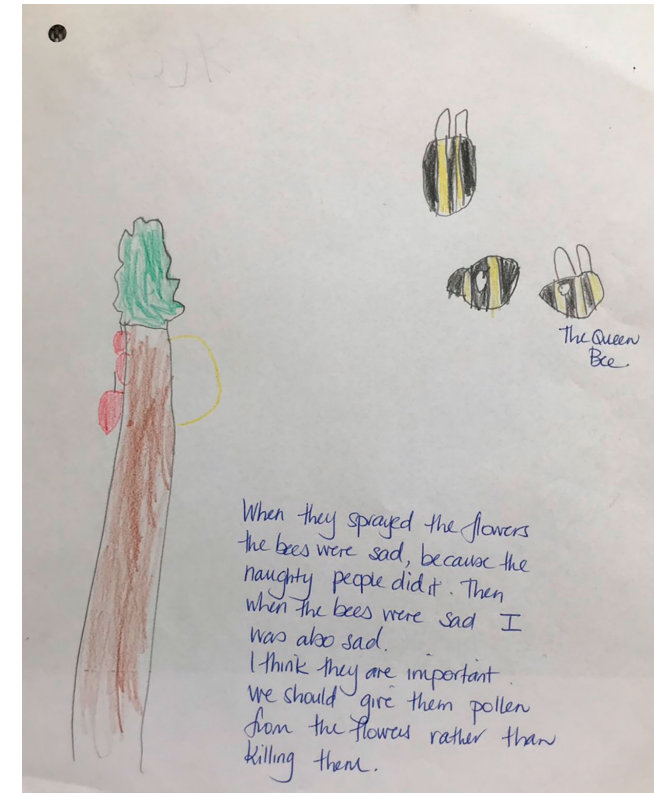 The Queen
Bee.
When they sprayed the flowers
the bees were sad, because the
naughty people did it. Then
when the bees were sad I
was also sad.
I think they are important.
We should give them pollen
from the flowers rather than
killing them.